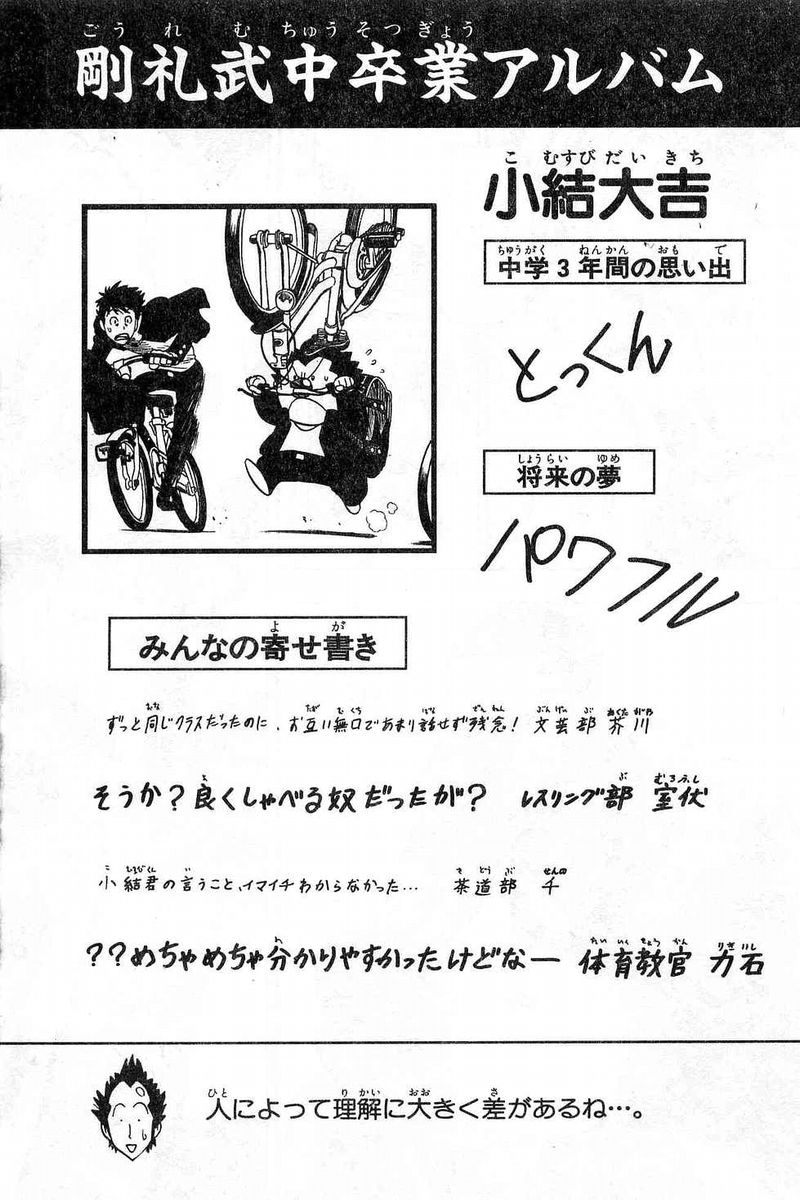 剛礼武中卒業アルバム
小結大吉
中学3年間の思い出
とっくん
将来の夢
パワフル
みんなの寄せ書き
ずっと同じクラスだったのに、お互い無口であまり話せず残念! 文芸部 芥川
そうか?良くしゃべる奴だったが? レスリング部 室伏
小結君の言うこと、イマイチわからなかった… 茶道部 千
??めちゃめちゃ分かりやすかったけどなー 体育教官 力石
人によって理解に大きく差があるね…。